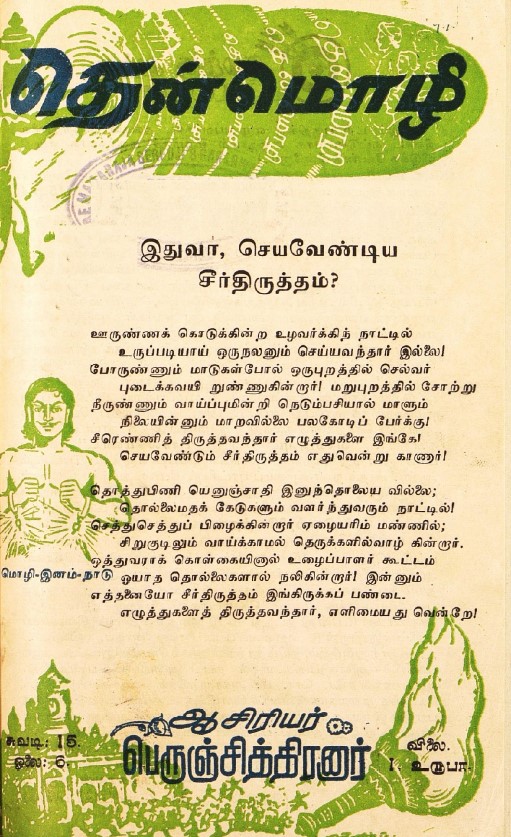 தென்மொழி
இதுவா, செயவேண்டிய
சீர்திருத்தம்?
ஊருண்ணக் கொடுக்கின்ற உழவர்க்கிந் நாட்டில்
உருப்படியாய் ஒருநலனும் செய்யவந்தார் இல்லை!
போருண்ணும் மாடுகள்போல் ஒருபுறத்தில் செல்வர்
புடைக்கவயி றுண்ணுகின்றார்! மறுபுறத்தில் சோற்று
நீருண்ணும் வாய்ப்புமின்றி நெடும்பசியால் மாளும்
நிலையின்னும் மாறவில்லை பலகோடிப் பேர்க்கு!
சீரெண்ணித் திருத்தவந்தார் எழுத்துகளை இங்கே!
செயவேண்டும் சீர்திருத்தம் எதுவென்று காணார்!
தொத்துபிணி யெனுஞ்சாதி இனுந்தொலைய வில்லை;
தொல்லைமதக் கேடுகளும் வளர்ந்துவரும் நாட்டில்!
செத்துசெத்துப் பிழைக்கின்றார் ஏழையரிம் மண்ணில்;
சிறுகுடிலும் வாய்க்காமல் தெருக்களில்வாழ் கின்றார்.
ஒத்துவராக் கொள்கையினால் உழைப்பாளர் கூட்டம்
ஓயாத தொல்லைகளால் நலிகின்றார்! இன்னும்
எத்தனையோ சீர்திருத்தம் இங்கிருக்கப் பண்டை
எழுத்துகளைத் திருத்தவந்தார், எளிமையது வென்றே!
மொழி-இனம்-நாடு
ஆசிரியர்
பெருஞ்சித்திரனார்
சுவடி: 15.
ஓலை: 6.
விலை.
1. உருபா.